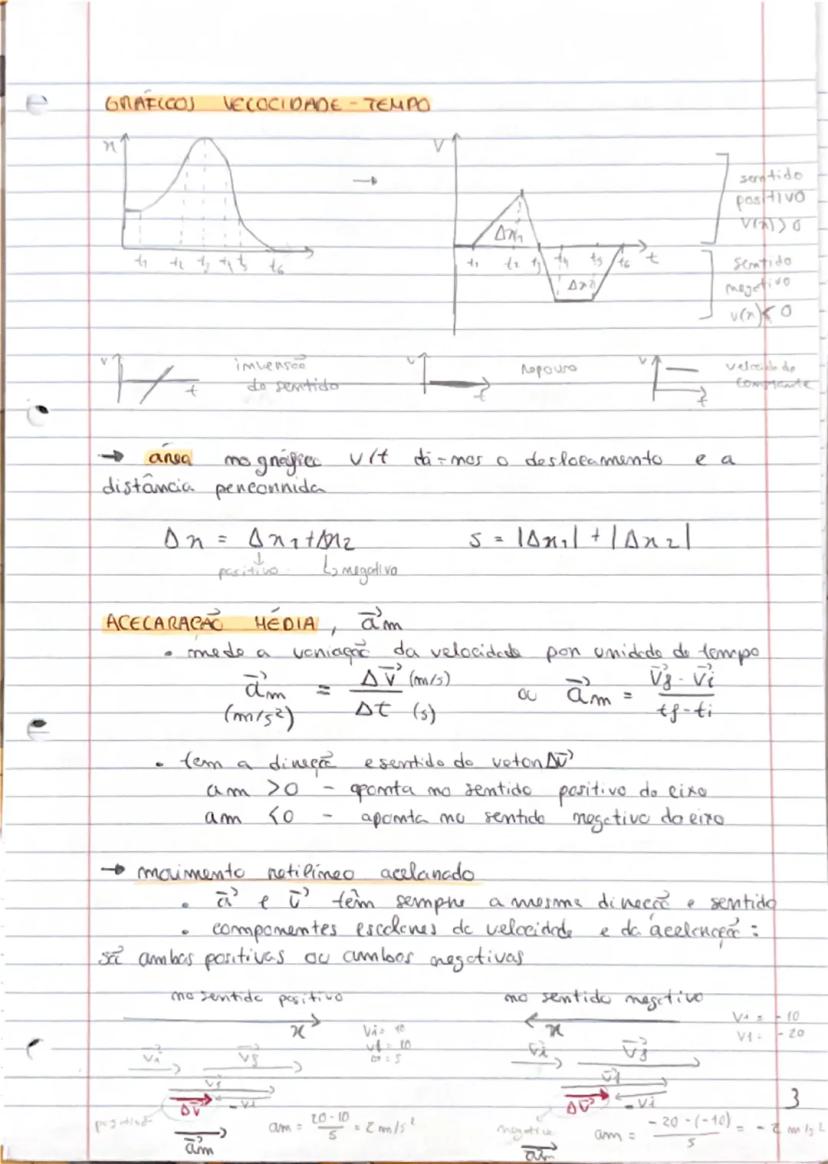 GRÁFICOS VELOCIDADE - TEMPO
x
V
t1 t2 t3 t4 t5 t6
Δx1
t1 t2 t3 t4 t5 t6 t
Δx2
sentido
positivo
V(x) > 0
sentido
negativo
v(x) < 0
v
t
inversão
do sentido
v
t
repouso
v
t
velocidade
constante
→ área no gráfico v/t dá-nos o deslocamento e a
distância percorrida
Δx = Δx1 + Δx2 s = |Δx1| + |Δx2|
positivo ↳ negativo
ACELARAÇÃO MÉDIA, a⃗m
• mede a variação da velocidade por unidade de tempo
a⃗m = Δv⃗ (m/s) / Δt (s) ou a⃗m = v⃗f - v⃗i / tf - ti
(m/s²)
• tem a direção e sentido do vetor Δv⃗
am > 0 - aponta no sentido positivo do eixo
am < 0 - aponta no sentido negativo do eixo
→ movimento retilíneo acelarado
• a⃗ e v⃗ têm sempre a mesma direção e sentido
• componentes escalares da velocidade e da aceleração:
são ambas positivas ou ambos negativas
no sentido positivo
x
vi = 10
vf = 10
Δt = 5
v⃗i v⃗f
v⃗f
Δv⃗ -v⃗i
positivo
a⃗m
am = 20 - 10 / 5 = 2 m/s²
no sentido negativo
x
vi = -10
vf = -20
v⃗i v⃗f
v⃗f
Δv⃗ -v⃗i
negativo
a⃗m
am = -20 - (-10) / 5 = -2 m/s²
3